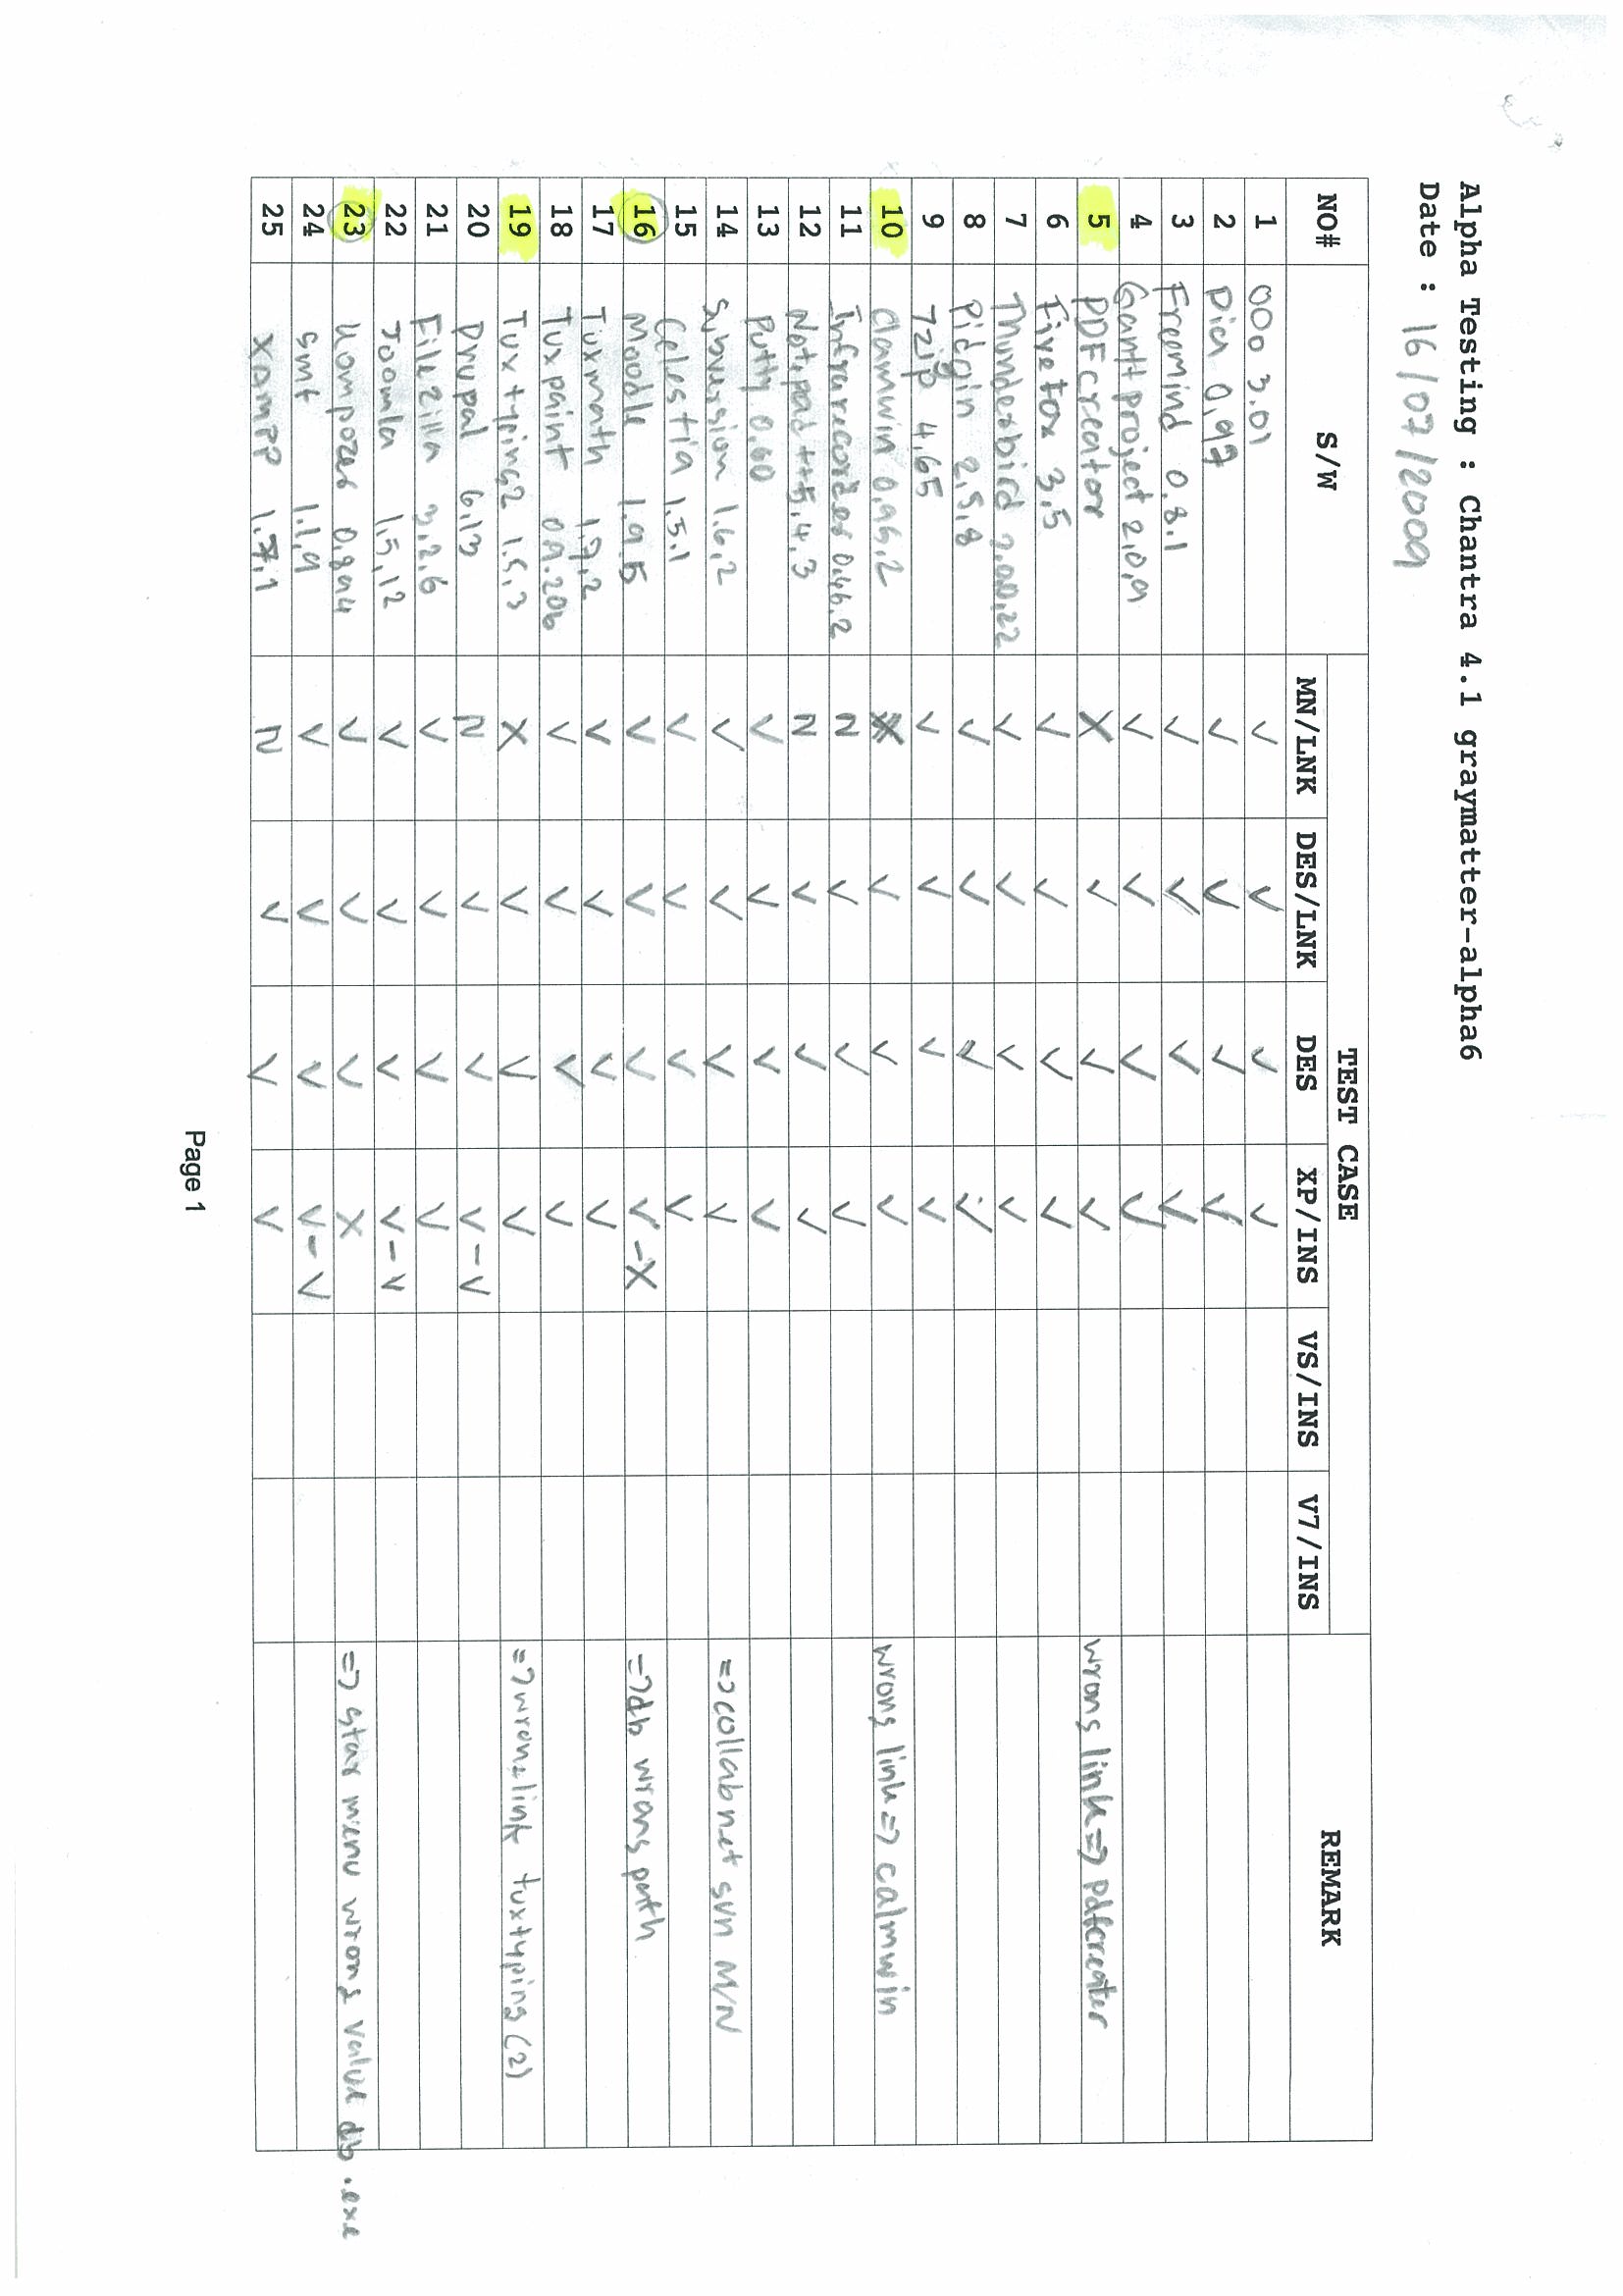 Alpha Testing : Chantra 4.1 graymatter-alpha6
Date : 16/07/2009
NO# S/W TEST CASE REMARK
MN/LNK DES/LNK DES XP/INS VS/INS V7/INS
1 OOo 3.01 ✓ ✓ ✓ ✓
2 Dia 0.97 ✓ ✓ ✓ ✓
3 Freemind 0.8.1 ✓ ✓ ✓ ✓
4 Ganttproject 2.0.9 ✓ ✓ ✓ ✓
5 PDFcreator X ✓ ✓ ✓ wrong link => pdfcreater
6 Firefox 3.5 ✓ ✓ ✓ ✓
7 Thunderbird 2.0.0.22 ✓ ✓ ✓ ✓
8 Pidgin 2.5.8 ✓ ✓ ✓ ✓
9 7zip 4.65 ✓ ✓ ✓ ✓
10 Clamwin 0.95.2 X ✓ ✓ ✓ wrong link => calmwin
11 Infrarecorder 0.46.2 N ✓ ✓ ✓
12 Notepad++ 5.4.3 N ✓ ✓ ✓
13 Putty 0.60 ✓ ✓ ✓ ✓
14 Subversion 1.6.2 ✓ ✓ ✓ ✓ => collabnet svn M/N
15 Celestia 1.5.1 ✓ ✓ ✓ ✓
16 Moodle 1.9.5 ✓ ✓ ✓ ✓-X => db wrong path
17 Tuxmath 1.7.2 ✓ ✓ ✓ ✓
18 Tuxpaint 0.9.20b ✓ ✓ ✓ ✓
19 Tuxtyping2 1.5.3 X ✓ ✓ ✓ => wrong link tuxtyping (2)
20 Drupal 6.13 N ✓ ✓ ✓-✓
21 Filezilla 3.2.6 ✓ ✓ ✓ ✓
22 Joomla 1.5.12 ✓ ✓ ✓ ✓-✓
23 Kompozer 0.8a4 ✓ ✓ ✓ X => star menu wrong value db .exe
24 smt 1.1.9 ✓ ✓ ✓ ✓-✓
25 XAMPP 1.7.1 N ✓ ✓ ✓
Page 1